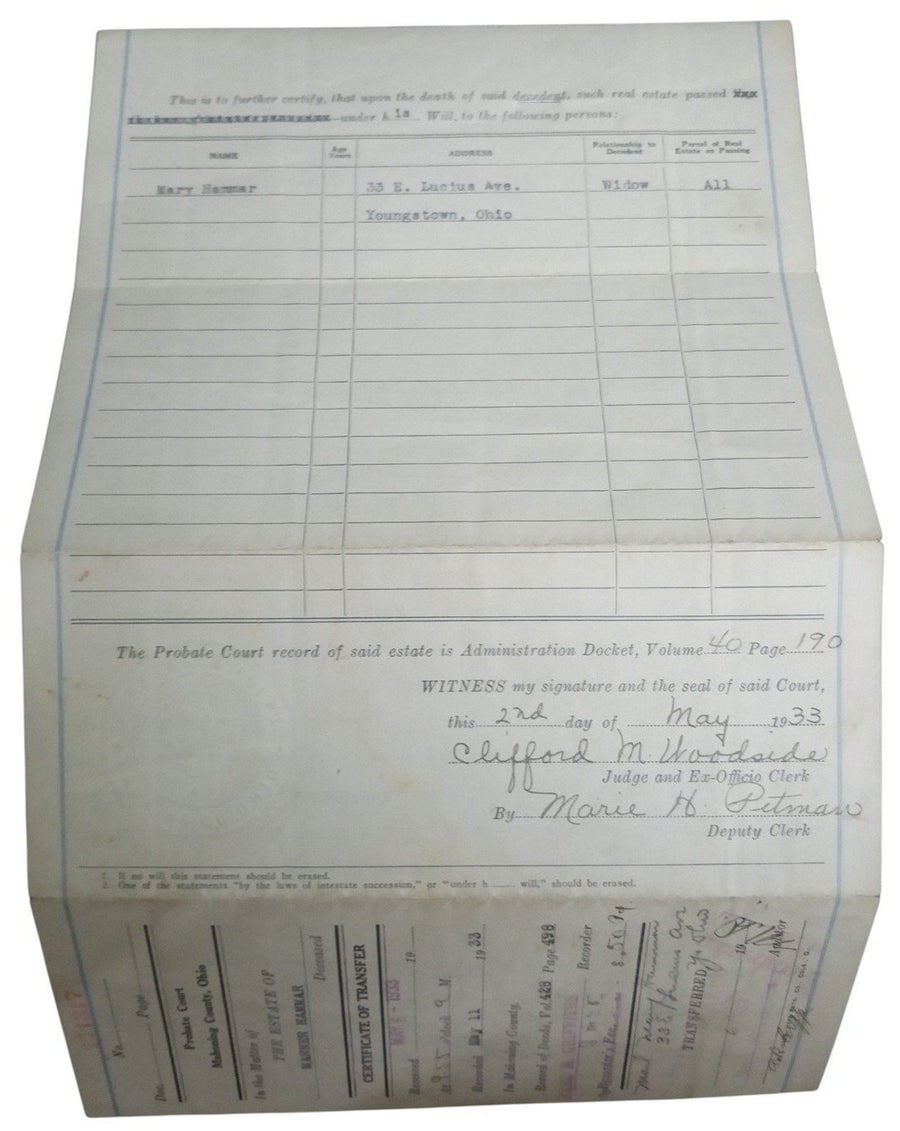 This is to further certify, that upon the death of said decedent, such real estate passed xxx
under h is Will, to the following persons:
NAME Age Years ADDRESS Relationship to Decedent Parcel of Real Estate so Passing
Mary Hammar 33 E. Lucius Ave. Widow All
Youngstown, Ohio
The Probate Court record of said estate is Administration Docket, Volume 40 Page 190
WITNESS my signature and the seal of said Court,
this 2nd day of May 1933
Clifford M. Woodside
Judge and Ex-Officio Clerk
By Marie H. Petman
Deputy Clerk
1. If no will this statement should be erased.
2. One of the statements "by the laws of intestate succession," or "under h will," should be erased.
No.
Doc. Page
Probate Court
Mahoning County, Ohio
In the Matter of
THE ESTATE OF
HAMMAR
Deceased
CERTIFICATE OF TRANSFER
1933
Received 19
At 9:55 o'clock A M.
Recorded May 11 1933
In Mahoning County,
Record of Deeds, Vol 428 Page 498
Recorder
Recorder's Fee $.50
Mary Hammar
33 E Lucius Ave
TRANSFERRED
19
Auditor